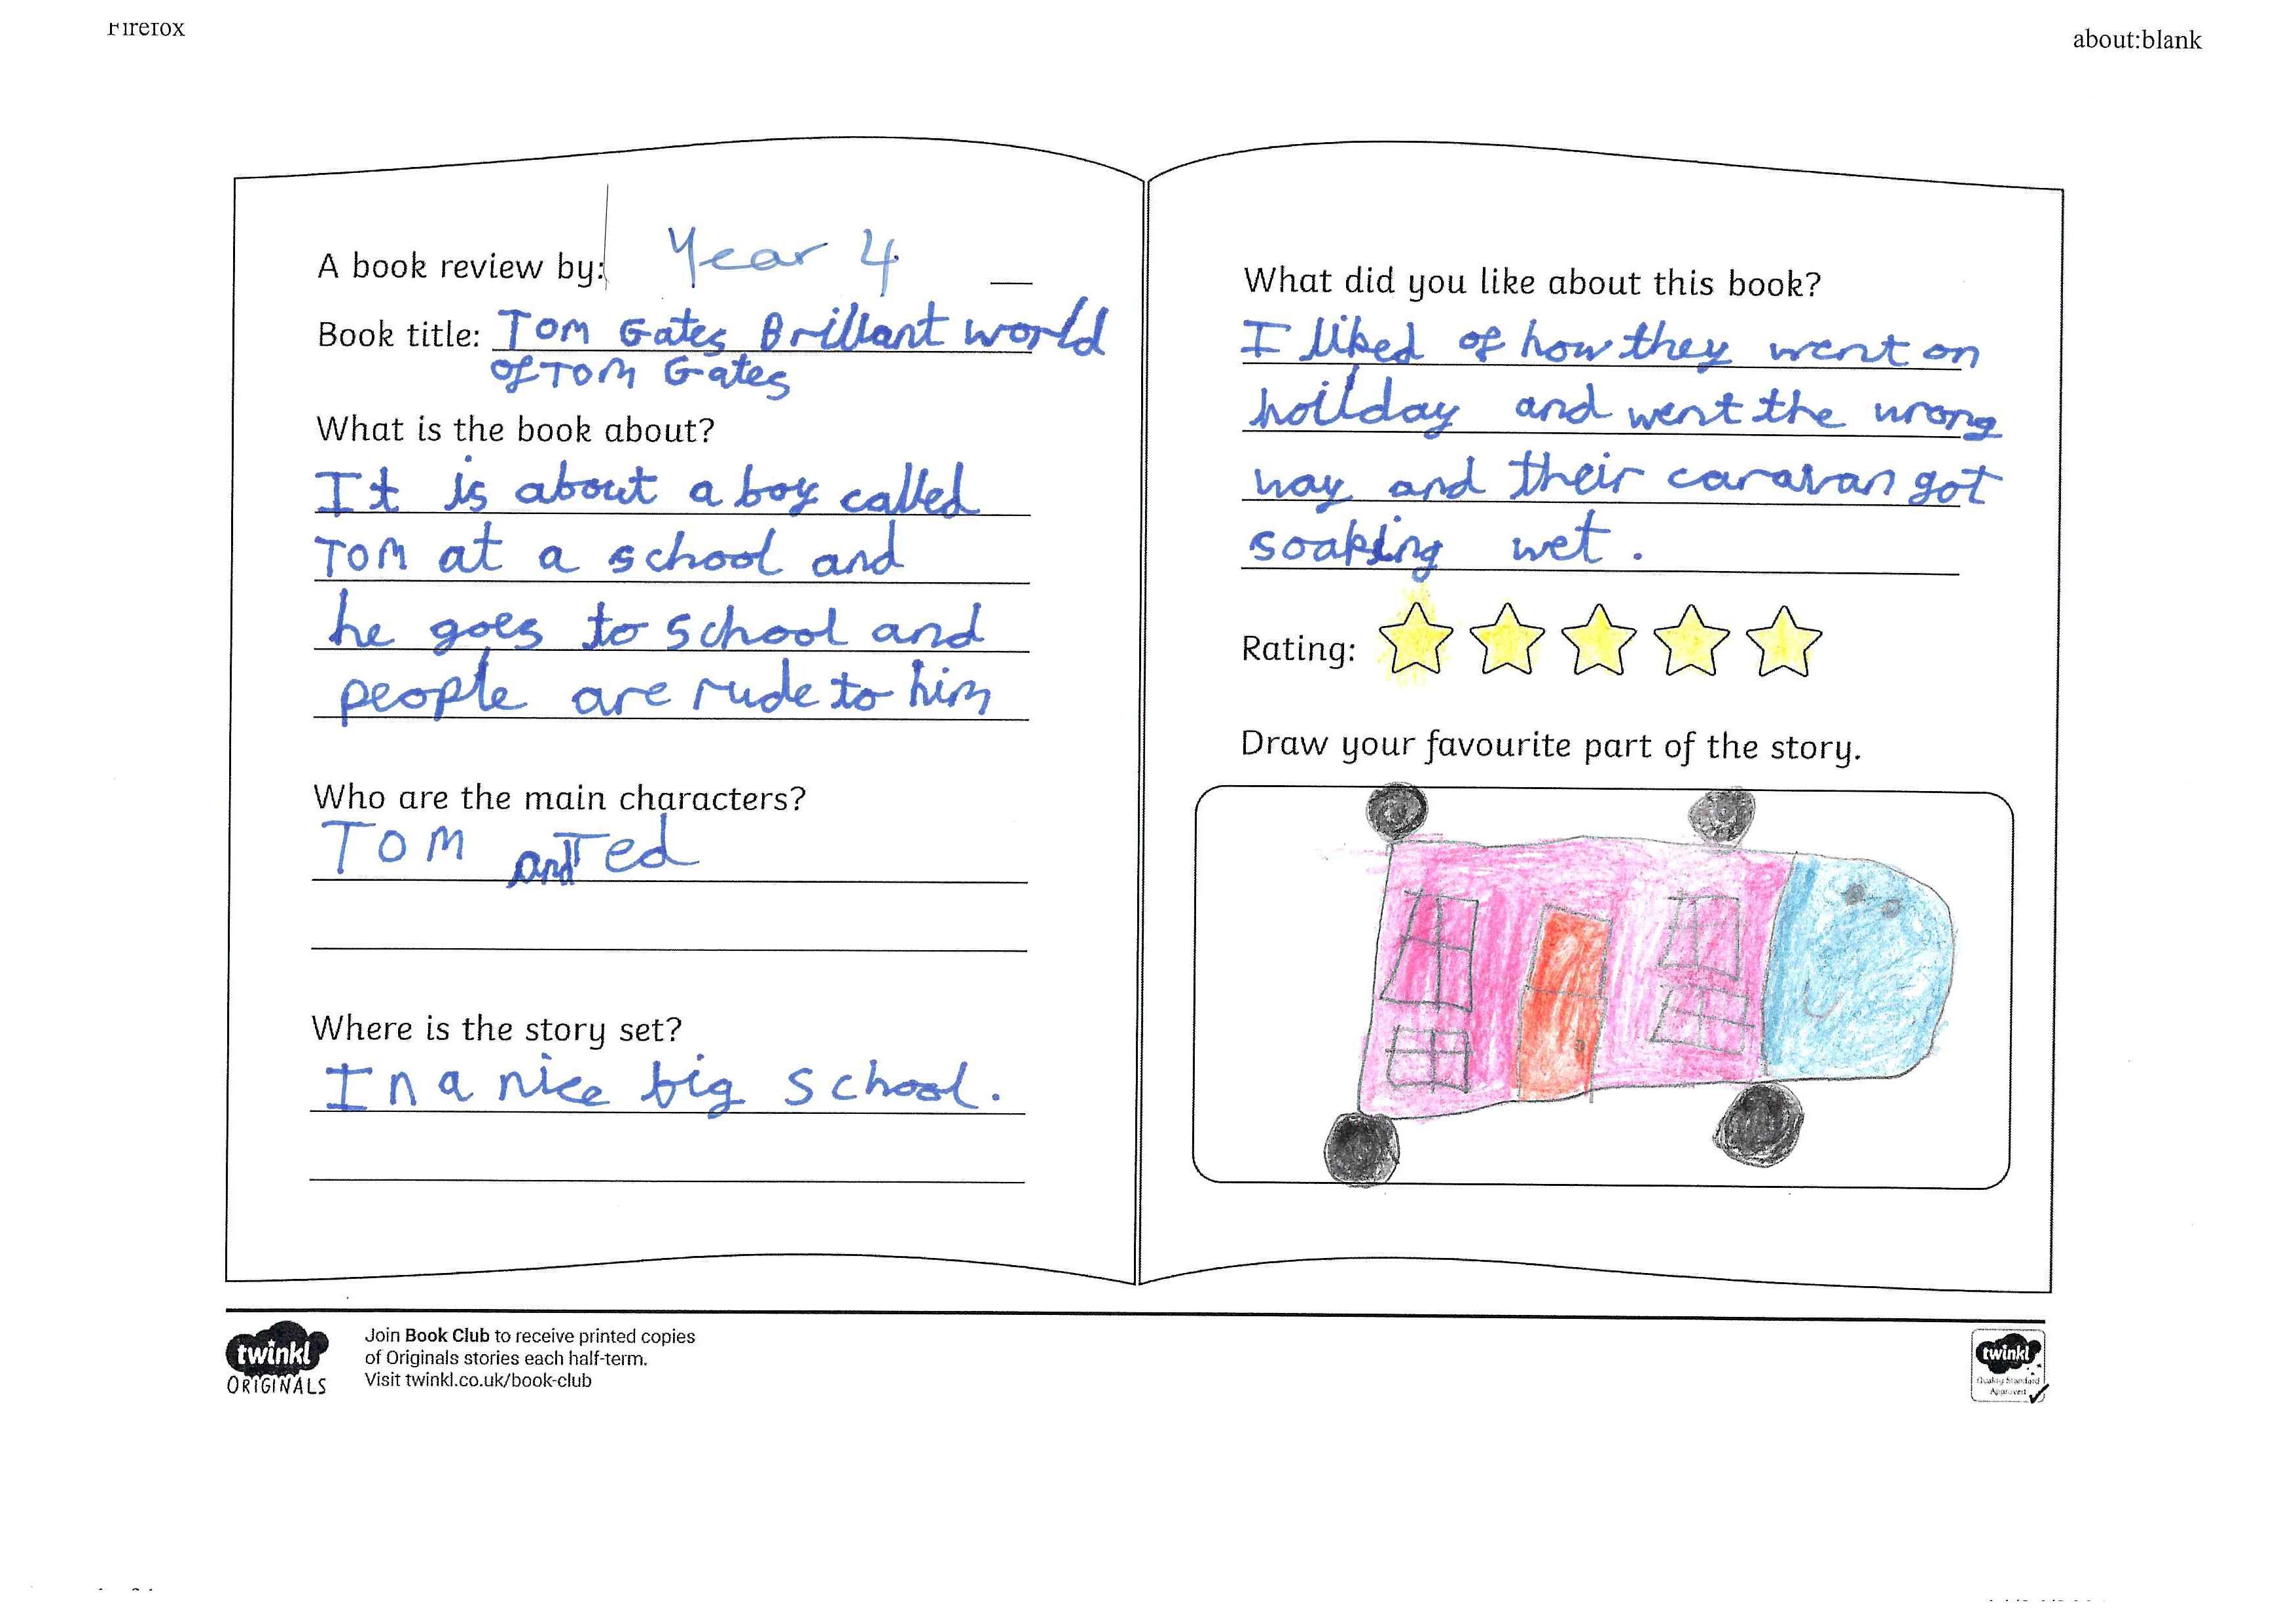 Firefox
about:blank
A book review by: Year 4
Book title: Tom Gates Brillant world
of Tom Gates
What is the book about?
It is about a boy called
Tom at a school and
he goes to school and
people are rude to him
Who are the main characters?
Tom and Ted
Where is the story set?
In a nice big school.
What did you like about this book?
I liked of how they went on
hoilday and went the wrong
way and their caravan got
soaking wet.
Rating:
Draw your favourite part of the story.
twinkl
ORIGINALS
Join Book Club to receive printed copies
of Originals stories each half-term.
Visit twinkl.co.uk/book-club
twinkl
Quality Standard
Approved